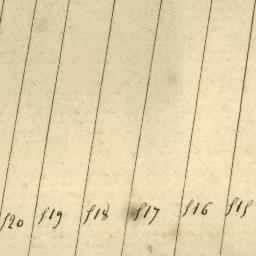 f20 f19 f18 f17 f16 f15